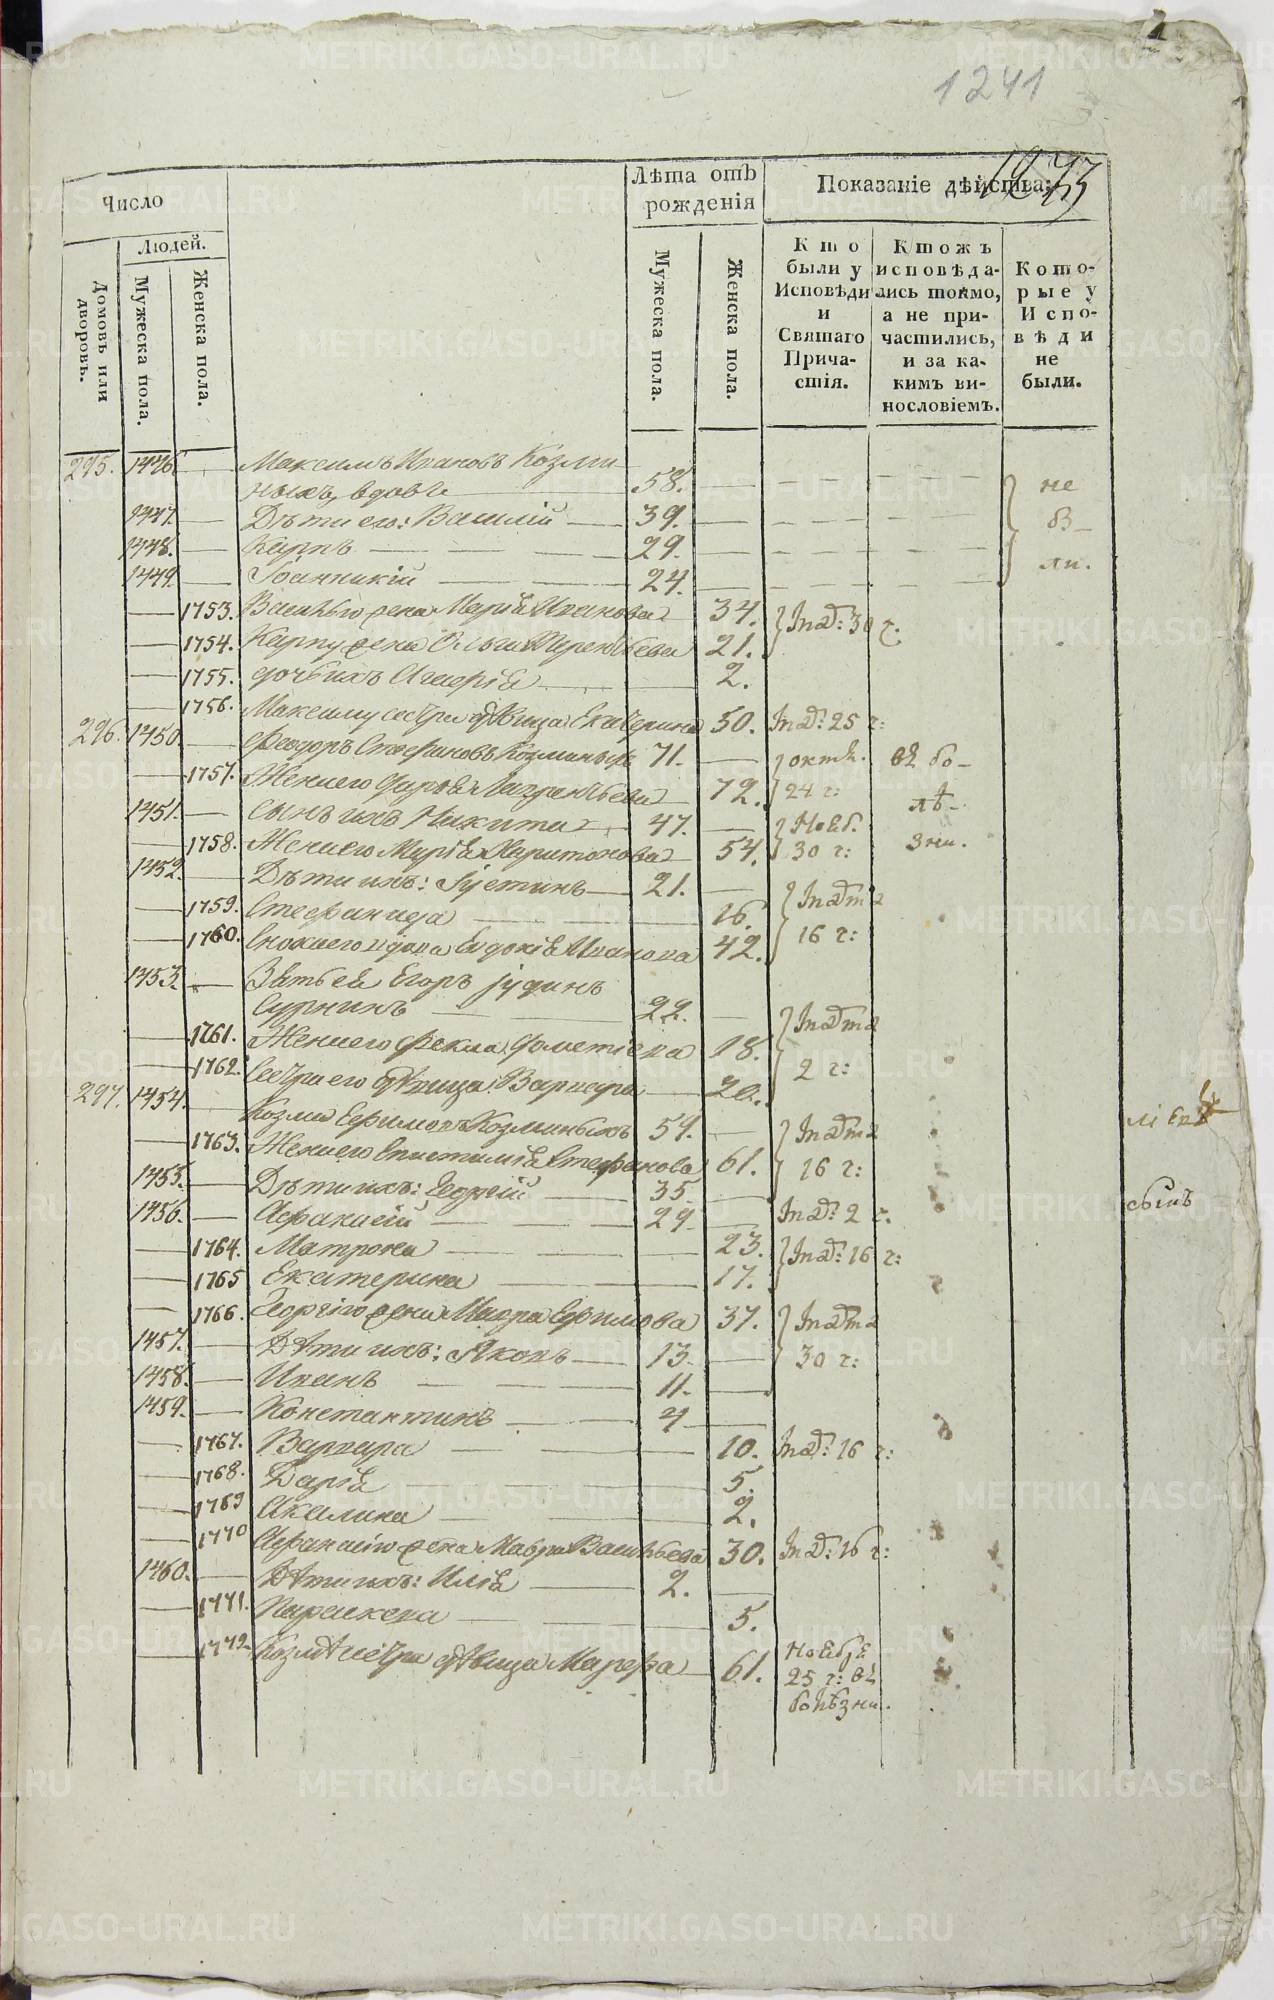 1241
1273
Число
Людей.
Домовъ или дворовъ.
Мужеска пола.
Женска пола.
Лѣта отъ рожденія
Мужеска пола.
Женска пола.
Показаніе дѣйства:
Кто были у Исповѣди и Святаго Причастія.
Ктожъ исповѣдались токмо, а не причастились, и за какимъ винословіемъ.
Которые у Исповѣди не были.
295. 1446. Максимъ Ивановъ Козми
ныхъ, вдовъ 58. не
1447. Дѣти его: Василій 39. бы-
1448. Карпъ 29. ли.
1449. Іоанникій 24.
1753. Василью жена Марія Иванова 34. 30 ч.
1754. Карпу жена Ольга Терентьева 21.
1755. дочь ихъ Агаѳія 2.
1756. Максиму сестра дѣвица Екатерина 50. 25 ч:
296. 1450. Ѳеодоръ Стефановъ Козминыхъ 71. октя. въ бо-
1757. Жена его Дарья Лаврентьева 72. 24 ч: лѣ-
1451. сынъ ихъ Никита 47. Нояб. зни.
1758. Жена его Марія Харитонова 54. 30 ч:
1452. Дѣти ихъ: Іустинъ 21.
1759. Стефанида 16.
1760. Сноха его вдова Евдокія Иванова 42. 16 ч:
1453. Зять ея Егоръ Іудинъ
Суринъ 22.
1761. Жена его Фекла Дометіева 18.
1762. Сестра его дѣвица Варвара 20. 2 ч:
297. 1454. Козма Ефимовъ Козминыхъ 59.
1763. Жена его Епистимія Стефанова 61. 16 ч:
1455. Дѣти ихъ: Георгій 35.
1456. Афанасій 29. 2 ч. сынъ
1764. Матрона 23. 16 ч:
1765 Екатерина 17.
1766. Георгію жена Мавра Ефимова 37.
1457. Дѣти ихъ: Яковъ 13. 30 ч:
1458. Иванъ 11.
1459. Константинъ 7
1767. Варвара 10. 16 ч:
1768. Дарія 5.
1769 Акилина 2.
1770 Афанасію жена Мавра Васильева 30. 16 ч:
1460. Дѣти ихъ: Илія 2.
1771. Параскева 5.
1772. Козмѣ сестра дѣвица Марфа 61. Ноября
25 ч: въ
болѣзни.